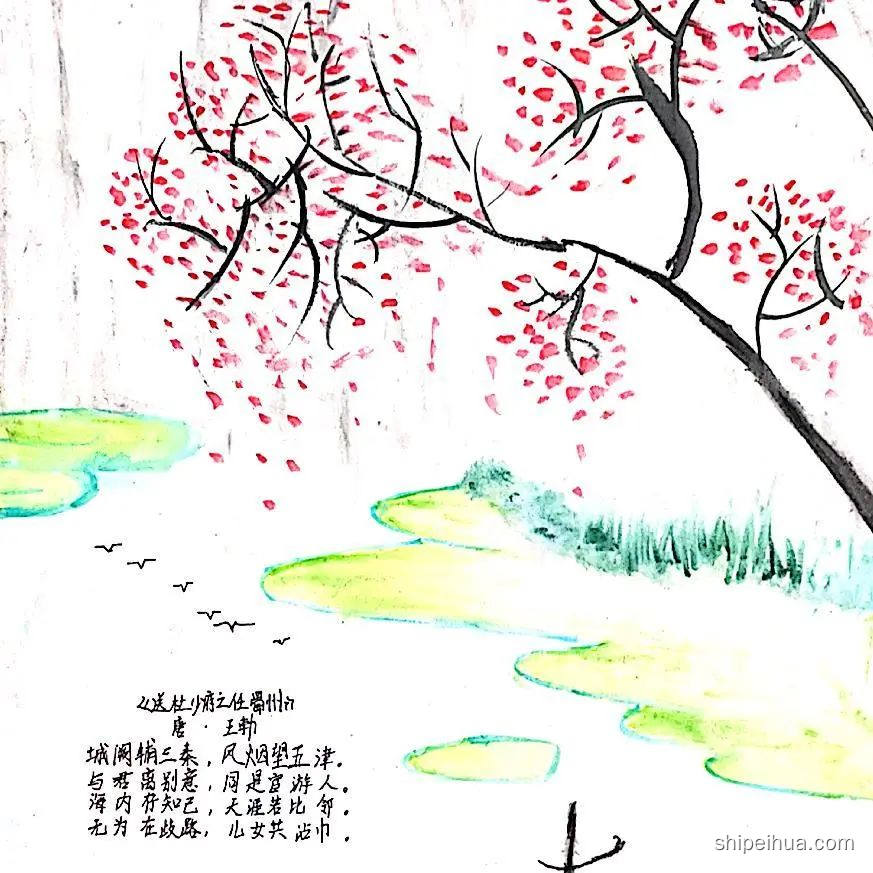 《送杜少府之任蜀州》
唐·王勃
城阙辅三秦，风烟望五津。
与君离别意，同是宦游人。
海内存知己，天涯若比邻。
无为在歧路，儿女共沾巾。
shipeihua.com